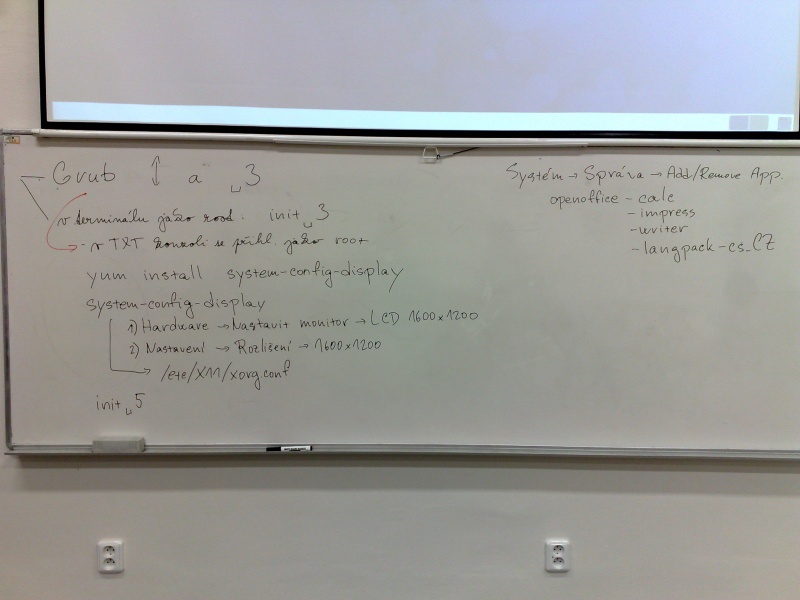 Grub ↕ a ␣3
v terminálu jako root: init␣3
- v TXT konzoli se přihl. jako root
yum install system-config-display
system-config-display
1) Hardware → Nastavit monitor → LCD 1600x1200
2) Nastavení → Rozlišení → 1600x1200
→ /etc/X11/xorg.conf
init␣5
Systém → Správa → Add/Remove App.
openoffice - calc
- impress
- writer
- langpack-cs_CZ